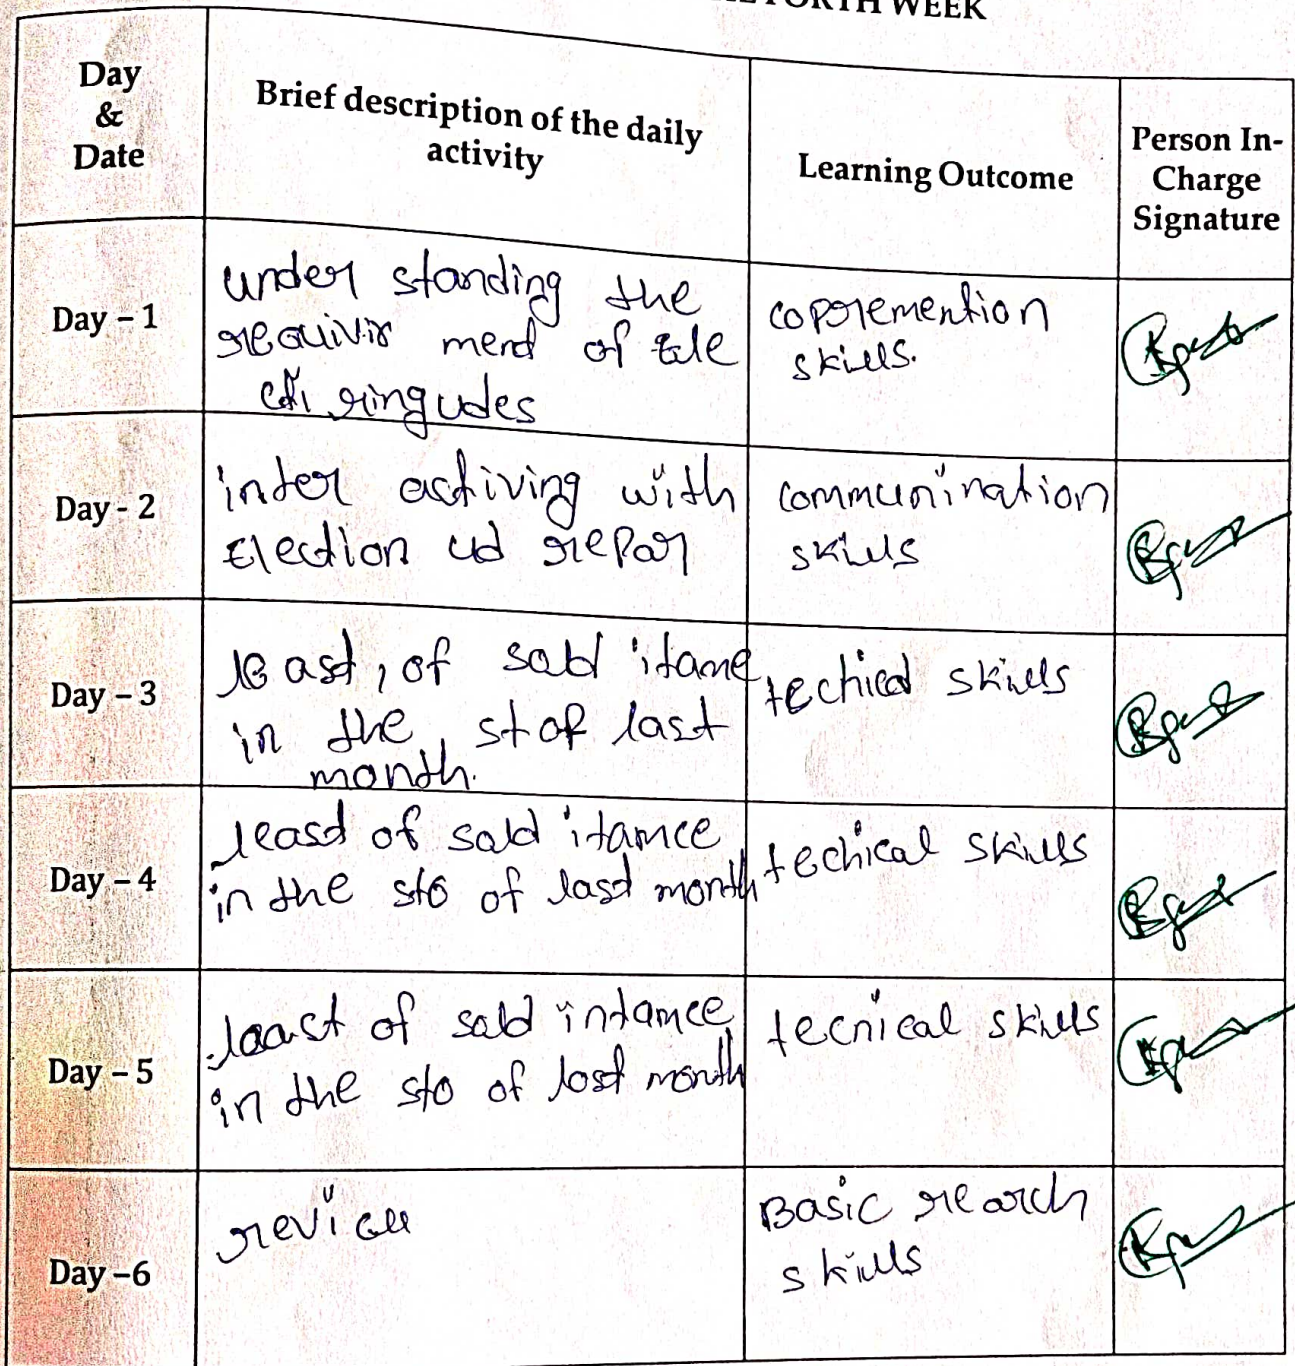 FORTH WEEK
Day
&
Date
Brief description of the daily
activity
Learning Outcome
Person In-
Charge
Signature
Day – 1
under standing the
merd of
copremention
skills.
Day - 2
inter activing with
Election ud repar
communination
skills
Day – 3
of sald itame
in the stof last
month.
techied skills
Day – 4
leasd of sald itamce
in the sto of last month
techical skills
Day – 5
of sald intamce
in the sto of lost month
tecnical skills
Day –6
Basic rearch
skills